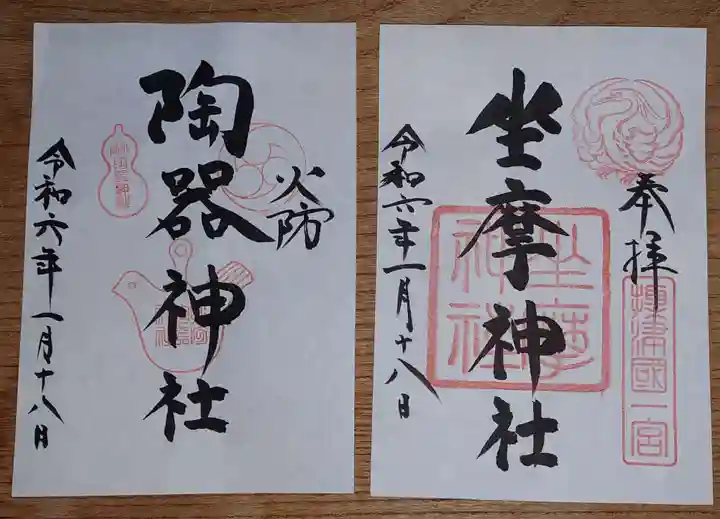 奉拝
摂津國一宮
坐摩神社
坐摩神社
令和六年一月十八日
火防
陶器神社
令和六年一月十八日